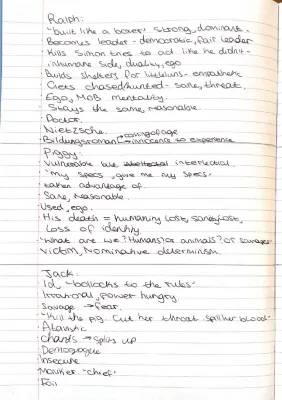 Ralph:
"built like a boxer" strong, dominant.
Becomes leader - democratic, fair leader
Kills Simon tries to act like he didnt -
inhumane side, duality, ego
Builds shelters for littleuns - empathetic
Gets chased/hunted - sane, threat,
Ego, MOB mentality.
Stays the same, reasonable.
Doctor.
Nietzsche.
Bildungsroman → coming of age
→ innocents to experience
Piggy:
Vulnerable but intellectual interlectual.
"my specs, give me my specs"
taken advantage of.
Sane, reasonable.
Used, ego.
His death = humanity lost, sanity lost,
Loss of identity.
"What are we? Humans? or animals? or savages"
Victim, Nominative determinism.
Jack:
Id, "bollocks to the rules"
Irrational, power hungry.
Savage → fear.
"Kill the pig. Cut her throat. Spill her blood"
Atavistic
chants → splits up
Demogogue
Insecure
Moniker "chief"
Foil